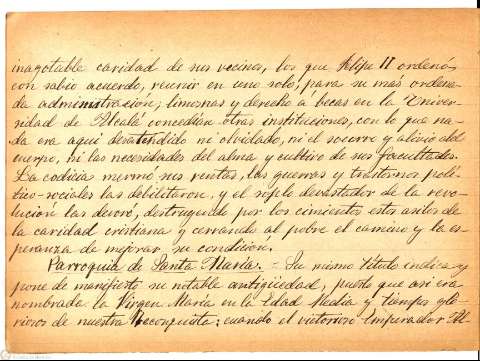 inagotable caridad de sus vecinos, los que Felipe II ordenó,
con sabio acuerdo, reunir en uno solo, para su más ordena
da administración; limosnas y derecho á becas en la Univer-
sidad de Alcalá concedían otras instituciones, con lo que na-
da era aquí desatendido ni olvidado, ni el socorro y alivio del
cuerpo, ni las necesidades del alma y cultivo de sus facultades.
La codicia mermó sus rentas, las guerras y trastornos polí-
tico-sociales las debilitaron, y el soplo devastador de la revo-
lución las devoró, destruyendo por los cimientos estos asilos de
la caridad cristiana y cerrando al pobre el camino y la es-
peranza de mejorar su condición.
Parroquia de Santa María.- Su mismo título indica y
pone de manifiesto su notable antigüedad, puesto que así era
nombrada la Virgen María en la Edad Media y tiempos glo-
riosos de nuestra Reconquista; cuando el victorioso Emperador Al-